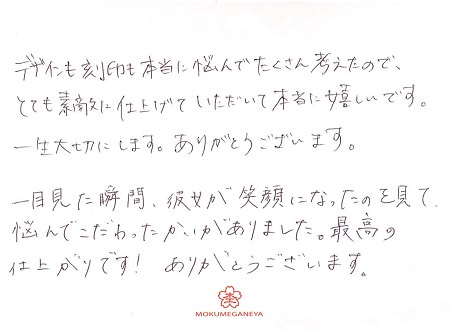 デザインも刻印も本当に悩んでたくさん考えたので、
とても素敵に仕上げていただいて本当に嬉しいです。
一生大切にします。ありがとうございます。
一目見た瞬間、彼女が笑顔になったのを見て、
悩んでこだわったかいがありました。最高の
仕上がりです! ありがとうございます。
MOKUMEGANEYA